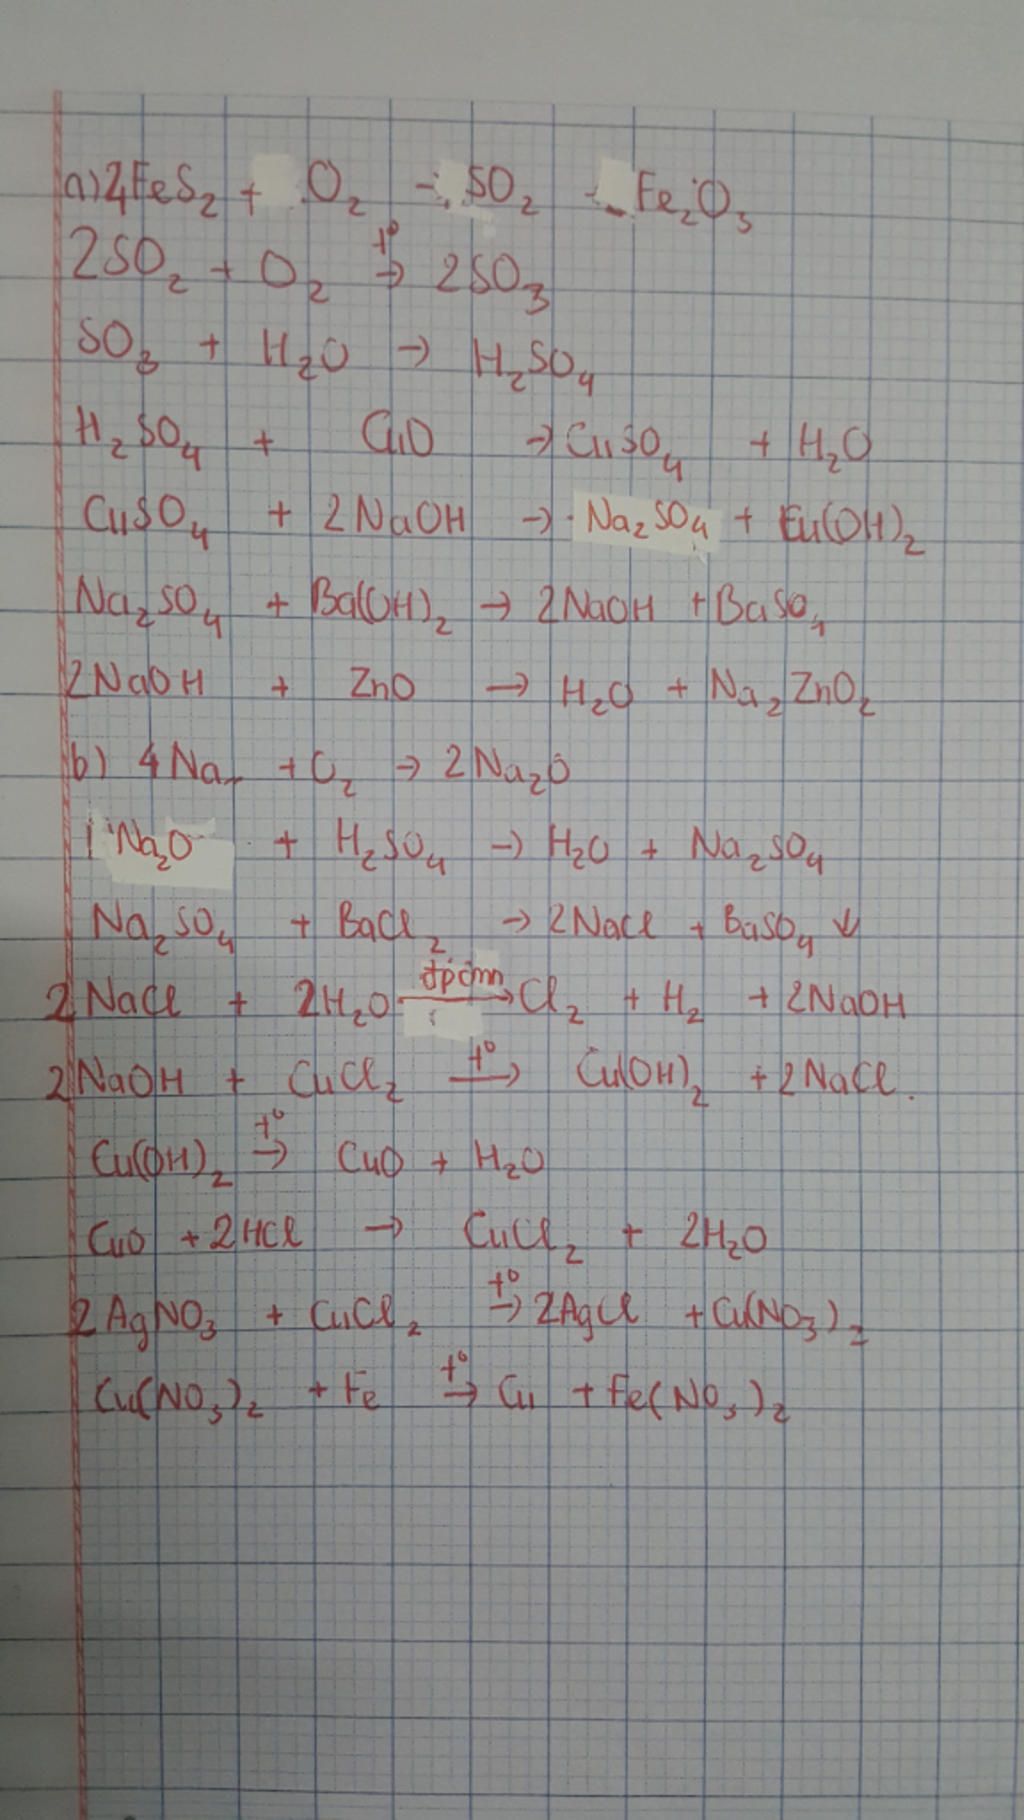 a) 4FeS₂ + O₂ → SO₂ - Fe₂O₃
2SO₂ + O₂ →(t°) 2SO₃
SO₃ + H₂O → H₂SO₄
H₂SO₄ + CuO → CuSO₄ + H₂O
CuSO₄ + 2NaOH → Na₂SO₄ + Cu(OH)₂
Na₂SO₄ + Ba(OH)₂ → 2NaOH + BaSO₄
2NaOH + ZnO → H₂O + Na₂ZnO₂
b) 4Na + O₂ → 2Na₂O
Na₂O + H₂SO₄ → H₂O + Na₂SO₄
Na₂SO₄ + BaCl₂ → 2NaCl + BaSO₄ ↓
2NaCl + 2H₂O → Cl₂ + H₂ + 2NaOH
2NaOH + CuCl₂ →(t°) Cu(OH)₂ + 2NaCl.
Cu(OH)₂ →(t°) CuO + H₂O
CuO + 2HCl → CuCl₂ + 2H₂O
2AgNO₃ + CuCl₂ →(t°) 2AgCl + Cu(NO₃)₂
Cu(NO₃)₂ + Fe →(t°) Cu + Fe(NO₃)₂